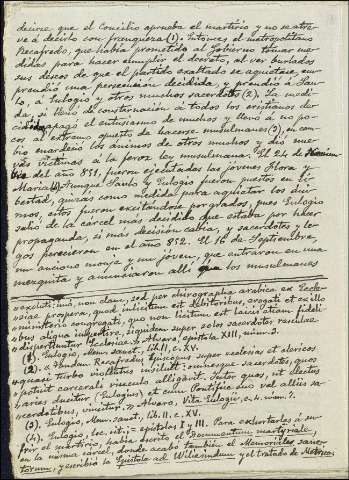 decirse que el Concilio aprueba el martirio y no se atre-
ve a decirlo con franqueza (1). Entonces el metropolitano
Recafredo, que había prometido al Gobierno tomar me-
didas para hacer cumplir el decreto, al ver burlados
sus deseos de que el partido exaltado se aquietase, em-
prendió una persecución decidida, y prendió á Sau-
lo, á Eulogio y otros muchos sacerdotes (2). La medi-
da, si llenó de consternación á todos los cristianos de-
cidida apagó el entusiasmo de muchos y llevó á no po-
cos al extremo opuesto de hacerse musulmanes (3), en cam-
bio enardeció los ánimos de otros muchos y dió nue-
vas víctimas á la feroz ley musulmana. El 24 de Noviem-
bre del año 851, fueron ejecutadas las jóvenes Flora y
María (4). Aunque Saulo y Eulogio fueron puestos en li-
bertad, quizás como medida para aquietar los áni-
mos, estos fueron excitándose por grados, pues Eulogio
salió de la cárcel más decidido que estaba por hacer
propaganda, si más decisión cabía, y sacerdotes y le-
gos perecieron en el año 852. El 16 de Septiembre,
un anciano monje y un joven, que entraron en una
mezquita y anunciaron allí que los musulmanes
exclusimus, non clam, sed per chirographa arabica ex Eccle-
siae propera, quod inlicitum est debitoribus, erogati et ex illo
ministerio congregati, quod non licitum est laicis etiam fideli-
bus aliqua subvertere, siquidem super solos sacerdotes vasculae
disperduntur Ecclesiae.» Alvaro, epístola XIII, núm. 3.
(1). Eulogio, Mem. sanct., lib. II, c. XV.
(2). «Recafredus Episcopus super ecclesias et clericos
quasi turbo violentus insiluit: omnesque sacerdotes, quos
potuit carcerali vinculo alligavit. Inter quos, ut electus
aries ducitur (Eulogius) et cum Pontifice suo vel aliis sa-
cerdotibus, vincitur.» Alvaro, Vita Eulogii, c. 2, núm. 4.
(3). Eulogio, Mem. sanct., lib. II, c. XV.
(4). Eulogio, loc. cit.; epístolas I y III. Para exhortarlas á su-
frir el martirio, había escrito el Documentum martyriale,
en la misma cárcel, donde acabó también el Memoriale sanc-
torum, y escribió la Epístola ad Wiliesindum y el tratado de Métrica